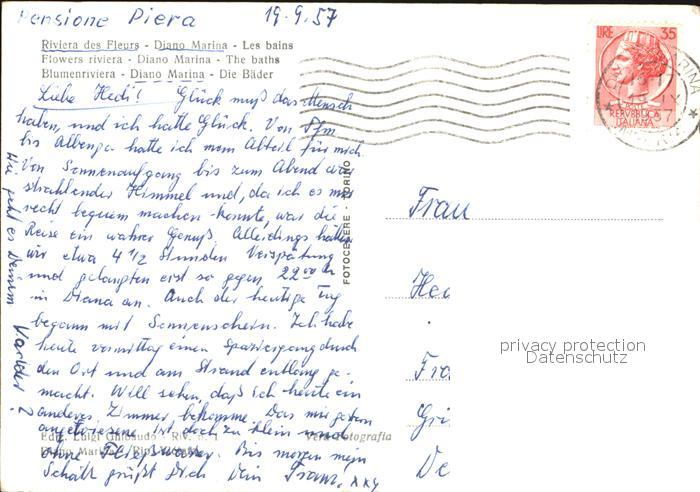 Pensione Piera 19.9.57
Riviera des Fleurs - Diano Marina - Les bains
Flowers riviera - Diano Marina - The baths
Blumenriviera - Diano Marina - Die Bäder
Liebe Hedi! Glück muß das Mensch
haben, und ich hatte Glück. Von
bis Albenga hatte ich mein Abteil für mich.
Von Sonnenaufgang bis zum Abend war
strahlender Himmel und, da ich es mir
recht bequem machen konnte, war die
Reise ein wahrer Genuß. Allerdings hatten
wir etwa 4 1/2 Stunden Verspätung
und gelangten erst so gegen 22 00 h
in Diano an. Auch der heutige Tag
begann mit Sonnenschein. Ich habe
heute vormittag einen Spaziergang durch
den Ort und am Strand entlang ge-
macht. Will sehen, daß ich heute ein
anderes Zimmer bekomme. Das mir gestern
angewiesene ist doch zu klein und
ohne Fließwasser. Bis morgen mein
Schatz grüßt Dich Dein Franz. xxy
Wie geht es Deinem
Edit. Luigi Ghibaudo - Riv.
Vera Fotografia
Diano Marina
FOTOCELERE - TORINO
LIRE 35
REPVBBLICA
ITALIANA
Frau
Hed
Fra
Gri
De
privacy protection
Datenschutz